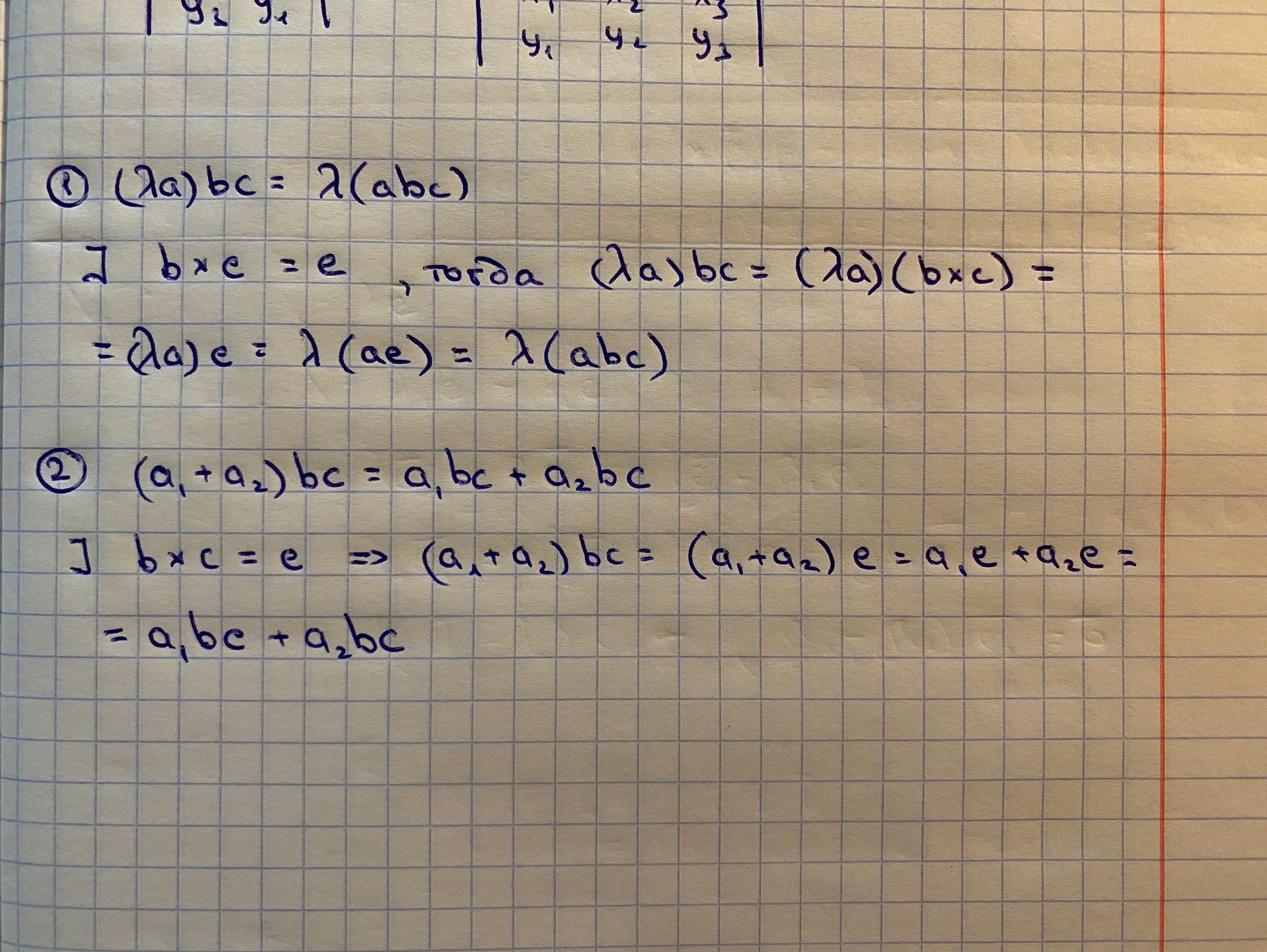 | y₂ y₁ | | x₁ x₂ x₃
| y₁ y₂ y₃ |
① (λa)bc = λ(abc)
⅃ b×c = e , тогда (λa)bc = (λa)(b×c) =
= (λa)e = λ(ae) = λ(abc)
② (a₁+a₂)bc = a₁bc + a₂bc
⅃ b×c = e => (a₁+a₂)bc = (a₁+a₂)e = a₁e + a₂e =
= a₁bc + a₂bc